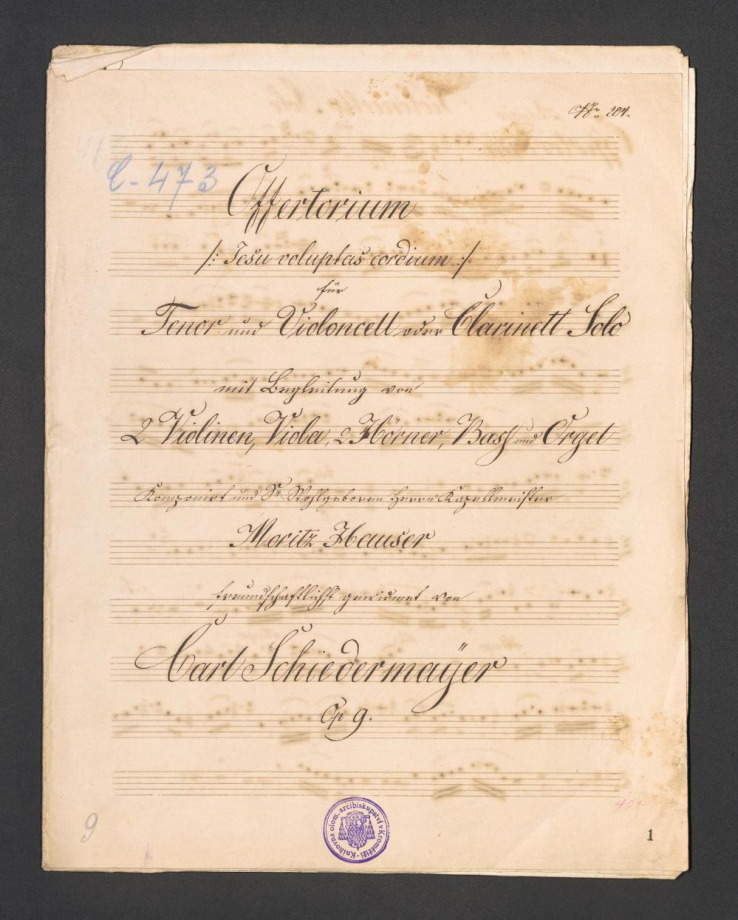 No 204.
C-473
Offertorium
/: Jesu voluptas cordium :/
für
Tenor und Violoncell oder Clarinett Solo
mit Begleitung von
2 Violinen, Viola, 2 Hörner, Bass und Orgel
Komponirt und Sr Wohlgeboren Herrn Kapellmeister
Moritz Hauser
freundschaftlichst gewidmet von
Carl Schiedermaÿer
Op 9.
Knihovna olom. arcibiskupství v Kroměříži
9
1